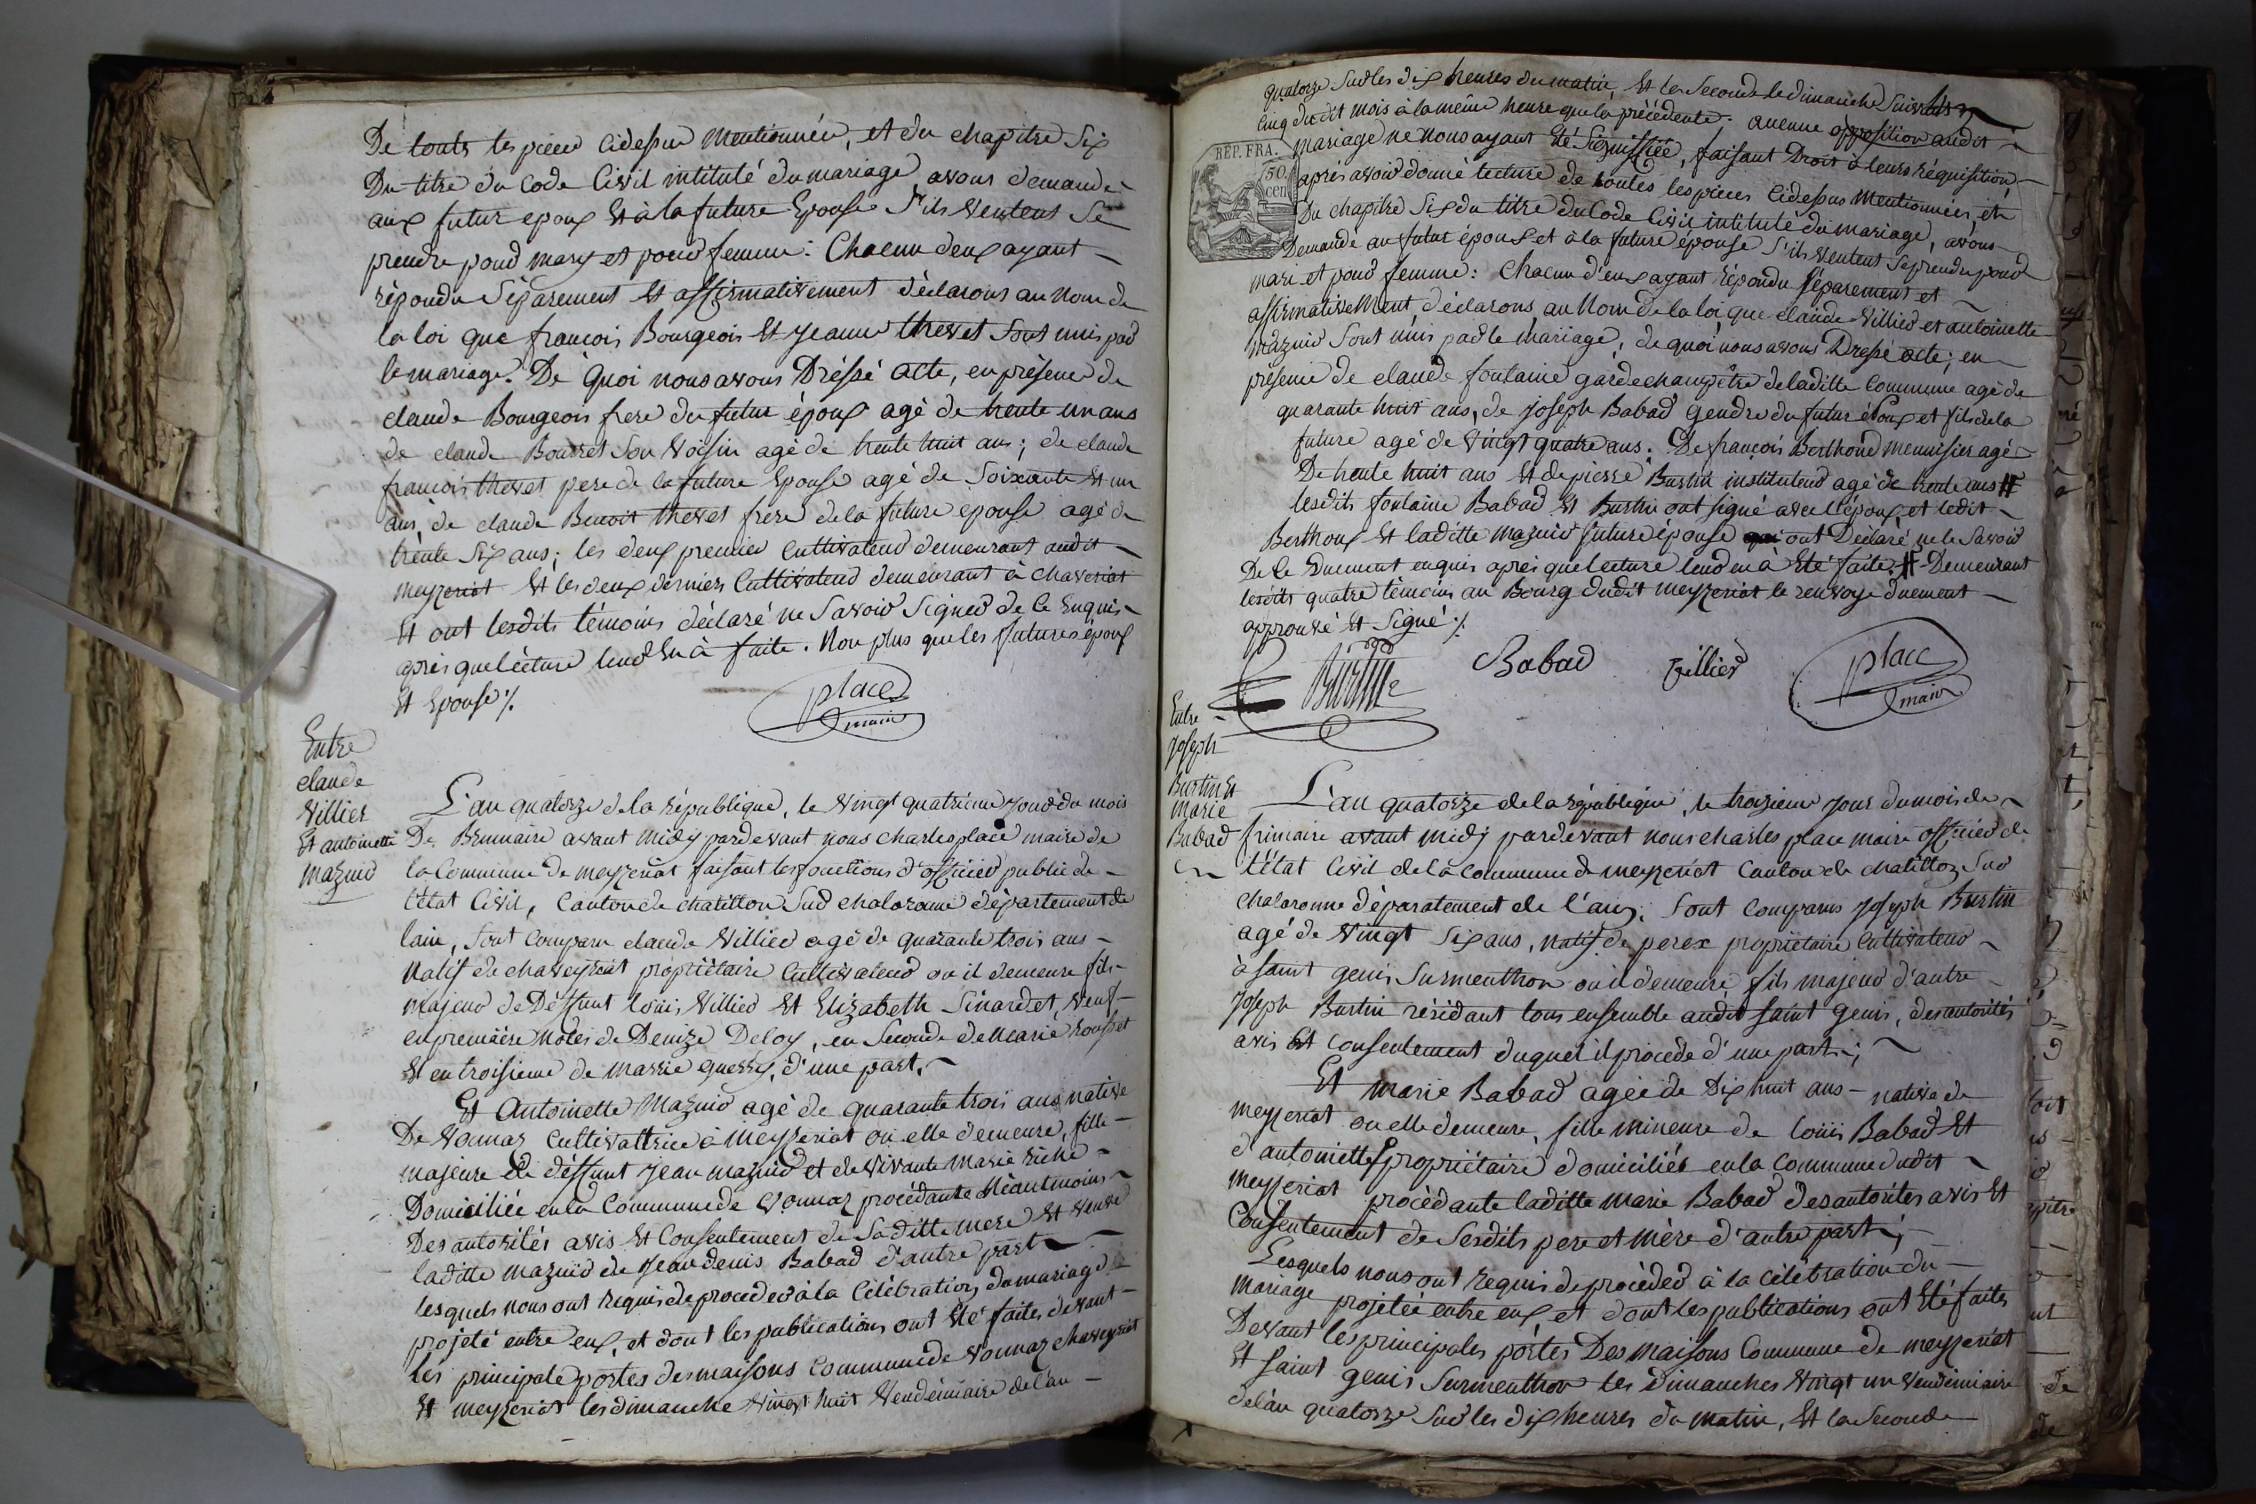 De toutes les pieces cidessus mentionnées, et du chapitre Six
Du titre du Code Civil intitulé du mariage avons demandé
aux futur epoux Et à la future Epouse S'ils veulent Se
prendre pour mary et pour femme : Chacun deux ayant
répondu Séparement Et affirmativement déclarons au Nom de
la loi que françois Bourgeois Et Jeanne thevet Sont unis par
le mariage. De quoi nous avons Dréssé acte, en présence de
claude Bourgeois frere du futur époux agé de trente un ans
de claude Bourret Son Voisin agé de trente huit ans ; de claude
francois thevet pere de la future Epouse agé de Soixante Et un
ans, de claude Benoit thevet frére de la future épouse agé de
trente Six ans ; les deux premier Cultivateur demeurant audit
meyzeriat Et les deux derniers Cultivateur demeurant à chaveriat
Et ont lesdits témoins déclaré ne Savoir Signer de ce Enquis
après que lecture leur En à faite. Non plus que les futures époux
Et Epouse ./.
place
maire
Entre
claude
Villier
Et antoinette
mazuir
L'an quatorze de la république, le Vingt quatrieme Jour du mois
De Brumaire avant midy pardevant nous charles place maire de
la Commune de meyzeriat faisant les fonctions d'officier public de
l'état Civil, Canton de chatillon Sur chalaronne département de
lain, Sont Comparu claude Villier agé de quarante trois ans
Natif de chaveyriat propriétaire Cultivateur ou il demeure fils
majeur de Déffunt Louis Villier Et Elizabeth Sinardet, Veuf
en premiére Notes de Denize Deloy, en Seconde de Marie rousset
Et en troisieme de Marrie querry, d'une part.
Et Antoinette Mazuir agé de quarante trois ans native
De Vonnaz Cultivattrice à Meyzeriat ou elle demeure, fille
majeure de déffunt Jean mazuir et de vivante Marie riche
Domiciliée en la Commune de Vonnaz procédante Néantmoins
Des autorités avis Et Consentement de Saditte mere Et veuve
laditte mazuir de Jean denis Babad d'autre part
lesquels nous ont requis de proceder à la Célébration du mariage
projeté entre eux, et dont les publications ont Eté faites devant
les principale portes des maisons Commune de Vonnaz chaveyriat
Et meyzeriat les dimanche Vingt huit Vendémiaire de l'an
quatorze Sur les dix heures du matin, Et la Seconde le dimanche Suivant
Cinq dudit mois à la même heure que la précédente. aucune opposition audit
REP. FRA.
50
cen
mariage ne nous ayant Eté Signiffiée, faisant Droit à leurs réquisition,
après avoir donné lecture de toutes les pieces cidessus Mentionnées, et
Du chapitre Six du titre du Code Civil intitulé du mariage, avons
Demandé au futur époux et à la future épouse S'ils veulent Se prendre pour
mari et pour femme : Chacun d'eux ayant répondu Séparement et
affirmativement, déclarons, au Nom de la loi que claude Villier et antoinette
mazuir Sont unis par le mariage, de quoi nous avons Dressé acte ; en
présence de claude fontaine garde champêtre de laditte Commune agé de
quarante huit ans, de Joseph Babad Gendre du futur époux et fils de la
future agé de Vingt quatre ans. De françois Berthoud Menuisier agé
De trente huit ans Et de pierre Burtin instituteur agé de trente ans #
lesdits fontaine Babad Et Burtin ont signé avec l'époux et ledit
Berthoux Et laditte Mazuir future épouse ont Déclaré ne le Savoir
De ce Duement enquis après que lecture leur en à Eté faite. # Demeurant
lesdits quatre témoins au Bourg dudit meyzeriat le renvoye duement
approuvé Et Signé ./.
Burtin
Babad
Villier
place
maire
Entre
Joseph
Burtin Et
Marie
Babad
L'an quatorze de la république, le troizieme Jour du mois de
frimaire avant midy pardevant nous charles place maire officier de
l'état Civil de la Commune de meyzeriat Canton de chatillon Sur
chalaronne départatement de l'ain. Sont Comparus Joseph Burtin
agé de Vingt Six ans, Natif de perex propriétaire Cultivateur
à Saint genis Surmenthon ou il demeure fils majeur d'autre
Joseph Burtin résidant tous ensemble audit Saint Genis, des autorités
avis Et Consentement duquel il procede d'une part ;
Et Marie Babad agée de Dix huit ans native de
Meyzeriat ou elle demeure, fille mineure de Loüis Babad Et
d'antoinette propriétaire domiciliés en la Commune dudit
Meyzeriat procédante laditte Marie Babad des autorités avis Et
Consentement de Sesdits pere et Mère d'autre part ;
Lesquels nous ont Requis de procéder à la célébration du
Mariage projetée entre eux et dont les publications ont Eté faites
Devant les principales portes Des Maisons Commune de meyzeriat
Et Saint genis Surmenthon les Dimanches Vingt un Vendémiaire
de l'an quatorze Sur les dix heures du Matin, Et la Seconde